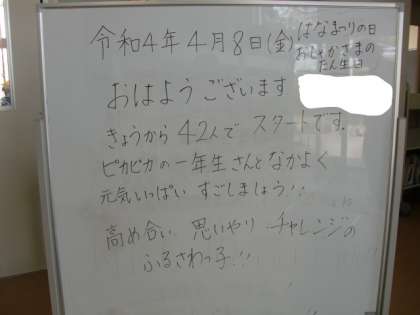 令和4年4月8日(金)
はなまつりの日
おしゃかさまの
たん生日
おはようございます
きょうから42人でスタートです。
ピカピカの一年生さんとなかよく
元気いっぱいすごしましょう!!
高め合い 思いやり チャレンジの
ふるさわっ子!!